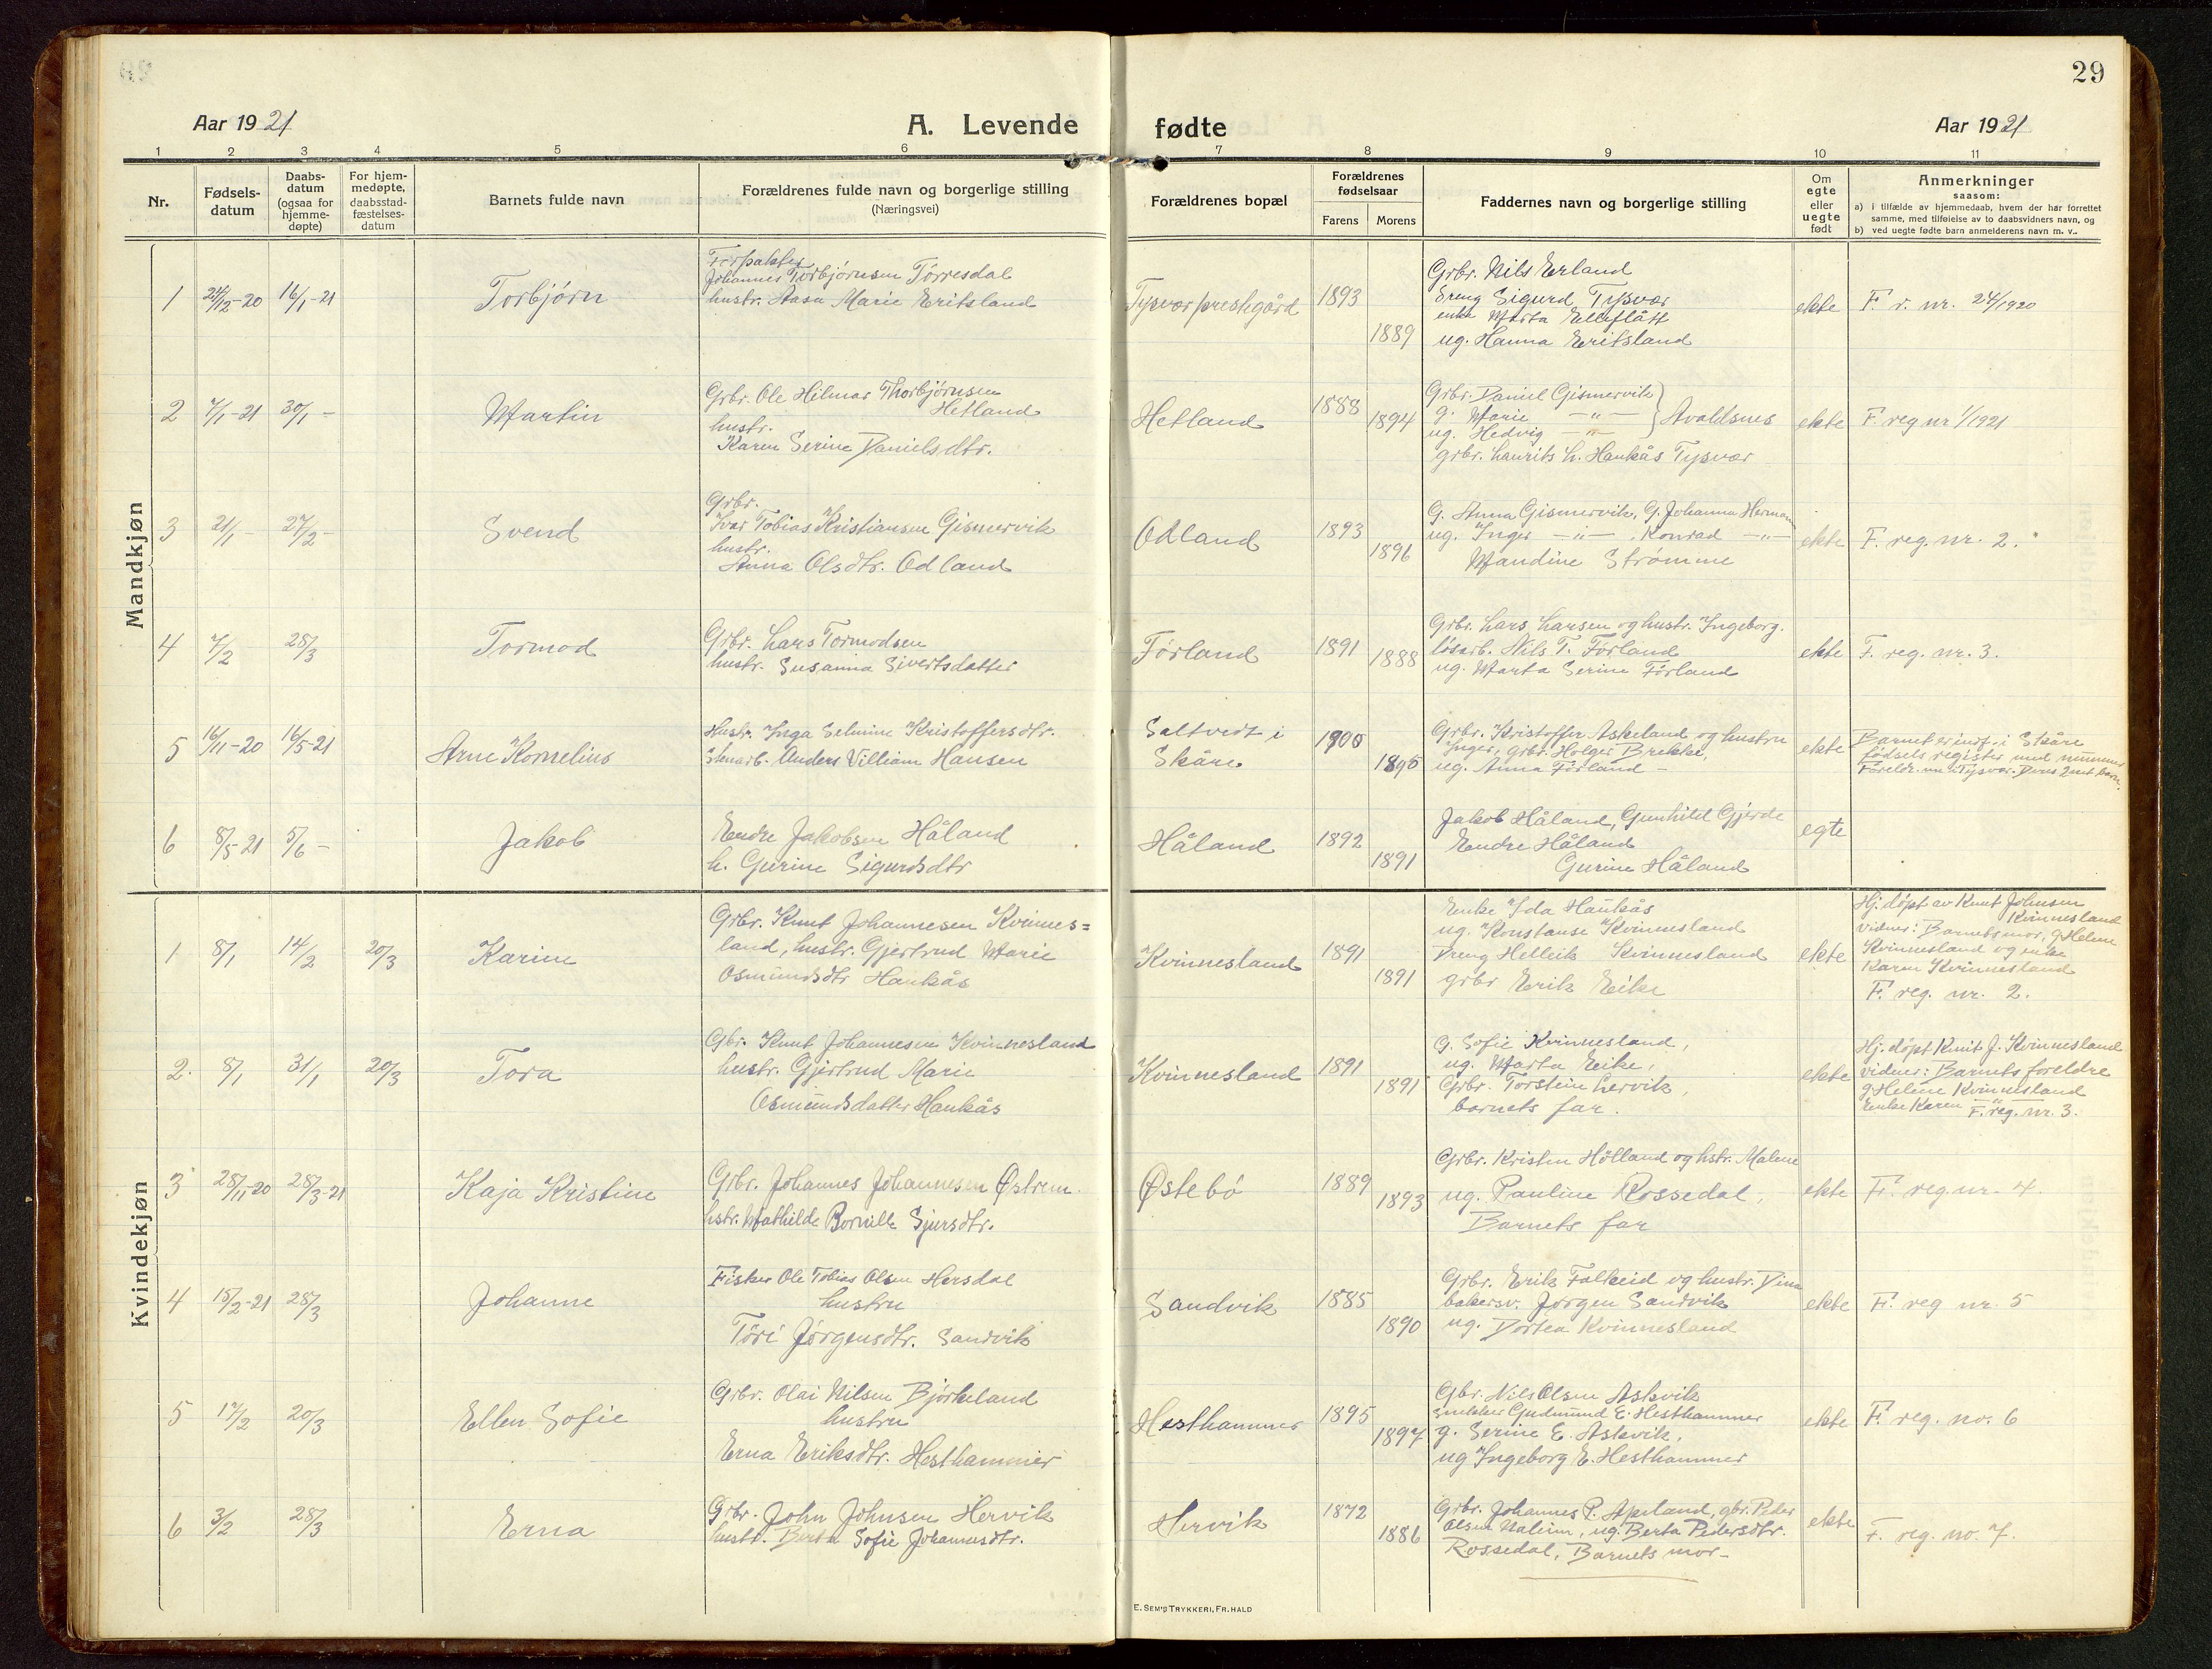 29
Aar 1921
A. Levende
fødte
Aar 1921
1 2 3 4 5 6 7 8 9 10 11
Nr.
Fødsels-
datum
Daabs-
datum
(ogsaa for
hjemme-
døpte)
For hjem-
medøpte,
daabsstad-
fæstelses-
datum
Barnets fulde navn
Forældrenes fulde navn og borgerlige stilling
(Næringsvei)
Forældrenes bopæl
Forældrenes
fødselsaar
Farens
Morens
Faddernes navn og borgerlige stilling
Om
egte
eller
uegte
født
Anmerkninger
saasom:
a) i tilfælde av hjemmedaab, hvem der har forrettet
samme, med tilføielse av to daabsvidners navn, og
b) ved uegte fødte barn anmelderens navn m. v..
Mandkjøn
1 24/12-20 16/1-21
Torbjørn
Forpakter
Johannes Torbjørnsen Tørresdal
hustr. Aasa Marie Eritsland
Tysvær prestegård
1893
1889
Grbr. Nils Erland
Dreng Sigurd Tysvær
enke Marta
ug. Hanna Eritsland
ekte
F. r. nr. 24/1920
2 7/1-21 30/1 -
Martin
Grbr. Ole Hilmar Thorbjørnsen
Hetland
hustr.
Karen Serine Danielsdtr.
Hetland
1888
1894
Grbr. Daniel Gismervik
g. Marie -"-
ug. Hedvig -"-
} Avaldsnes
grbr. Laurits L. Haukås Tysvær
ekte
F. reg nr 1/1921
3 21/1 - 27/2 -
Svend
Grbr.
Ivar Tobias Kristiansen Gismervik
hustr.
Anna Olsdtr. Odland
Odland
1893
1896
G. Anna Gismervik, G. Johanna Herman
ug. Inger -"- , Konrad -"-
Mandine Strømme
ekte
F. reg. nr. 2.
4 7/2 28/3
Tormod
Grbr. Lars Tormodsen
hustr. Susanna Sivertsdatter
Førland
1891
1888
Grbr. Lars Larsen og hustr. Ingeborg.
løsarb. Nils T. Førland
ug. Marta Serine Førland
ekte
F. reg. nr. 3.
5 16/11-20 16/5-21
Arne Kornelius
Hustr. Inga Selmine Kristoffersdtr.
Stenarb. Anders Villiam Hansen
Saltvedt i
Skåre
1900
1896
Grbr. Kristoffer Askeland og hustru
Inger, grbr. Holger Brekke,
ug. Anna Førland -
ekte
Barnet er indf. i Skåre
fødsels register med nummer
Foreldr. Tysvær. Deres 2net barn.
6 8/5-21 5/6 -
Jakob
Endre Jakobsen Håland
h. Gurine Sigurdsdtr
Håland
1892
1891
Jakob Håland, Gunhild Gjerde
Endre Håland
Gurine Håland
egte
Kvindekjøn
1 8/1 14/2 20/3
Karine
Grbr. Knut Johannesen Kvinnes=
land, hustr. Gjertrud Marie
Osmundsdtr Haukås
Kvinnesland
1891
1891
Enke Ida Haukås
ug. Konstanse Kvinnesland
Dreng Helleik Kvinnesland
grbr Erik Eike
ekte
Hj. døpt av Knut Johnsen
Kvinnesland
vidner: Barnets mor, g Helene
Kvinnesland og enke
Karen Kvinnesland
F. reg. nr. 2.
2. 8/1 31/1 20/3
Tora
Gbr. Knut Johannesen Kvinnesland
hustr. Gjertrud Marie
Osmundsdatter Haukås
Kvinnesland
1891
1891
G. Sofie Kvinnesland,
ug. Marta Eike,
Grbr. Torstein Lervik,
barnets far.
ekte
Hj. døpt Knut J. Kvinnesland
vidner: Barnets foreldre
g. Helene Kvinnesland
Enke Karen -"- F. reg. nr. 3.
3 28/11-20 28/3-21
Kaja Kristine
Grbr. Johannes Johannesen Østrem.
hstr. Mathilde Bornille Sjursdtr.
Østebö
1889
1893
Grbr. Kristen Hölland og hstr. Malene
ug. Pauline Rossedal,
Barnets far
ekte
F. reg. nr. 4.
4 15/2-21 28/3
Johanne
Fisker Ole Tobias Olsen Hersdal
hustru
Töri Jørgensdtr. Sandvik
Sandvik
1885
1890
Grbr. Erik Falkeid og hustr. Dina
bakersv. Jørgen Sandvik
ug. Dortea Kvinnesland
ekte
F. reg nr. 5
5 17/2 20/3
Ellen Sofie
Grbr. Olai Nilsen Bjørkeland
hustru
Erna Eriksdtr. Hesthammer
Hesthammer
1895
1897
Gbr. Nils Olsen Askvik
snekker Gudmund E. Hesthammer
g. Serine E. Askvik,
ug Ingeborg E. Hesthammer
ekte
F. reg. no. 6
6 3/2 28/3
Erna
Grbr. John Johnsen Hervik
hustr. Berta Sofie Johannesdtr.
Hervik
1872
1886
Grbr. Johannes P. Apeland, gbr. Peder
Olsen Naleim, ug. Berta Pedersdtr.
Rossedal, Barnets mor-
ekte
F. reg. no. 7.
E. SEM'S TRYKKERI, FR. HALD